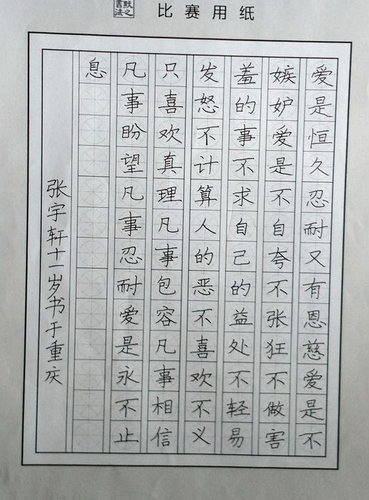 比赛用纸
爱是恒久忍耐又有恩慈爱是不
嫉妒爱是不自夸不张狂不做害
羞的事不求自己的益处不轻易
发怒不计算人的恶不喜欢不义
只喜欢真理凡事包容凡事相信
凡事盼望凡事忍耐爱是永不止
息
张宇轩十一岁书于重庆